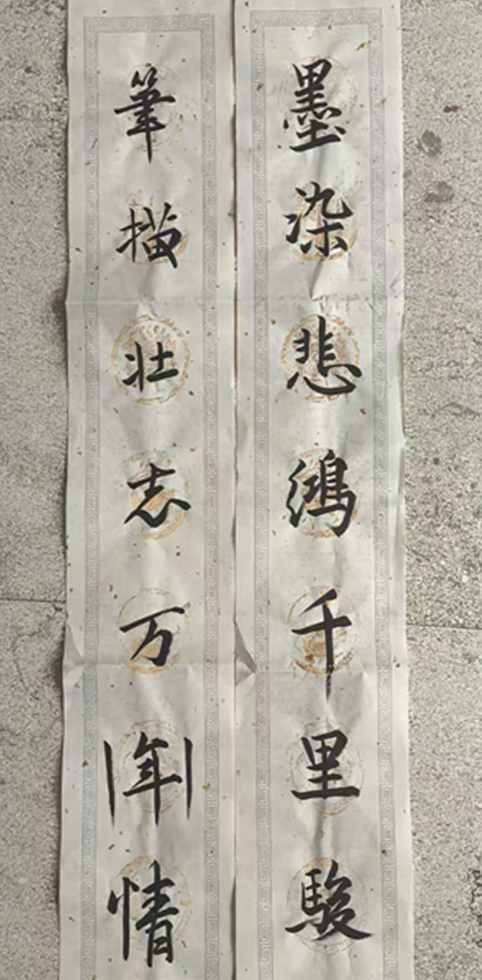 墨染悲鴻千里駿
筆描壮志万年情